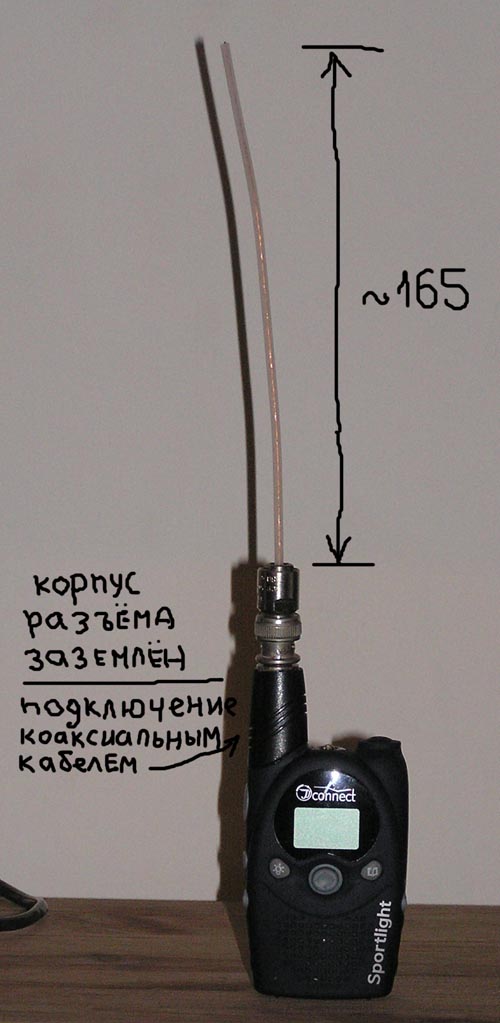 ~165
корпус
разъёма
заземлён
подключение
коаксиальным
кабелем
connect
Sportlight